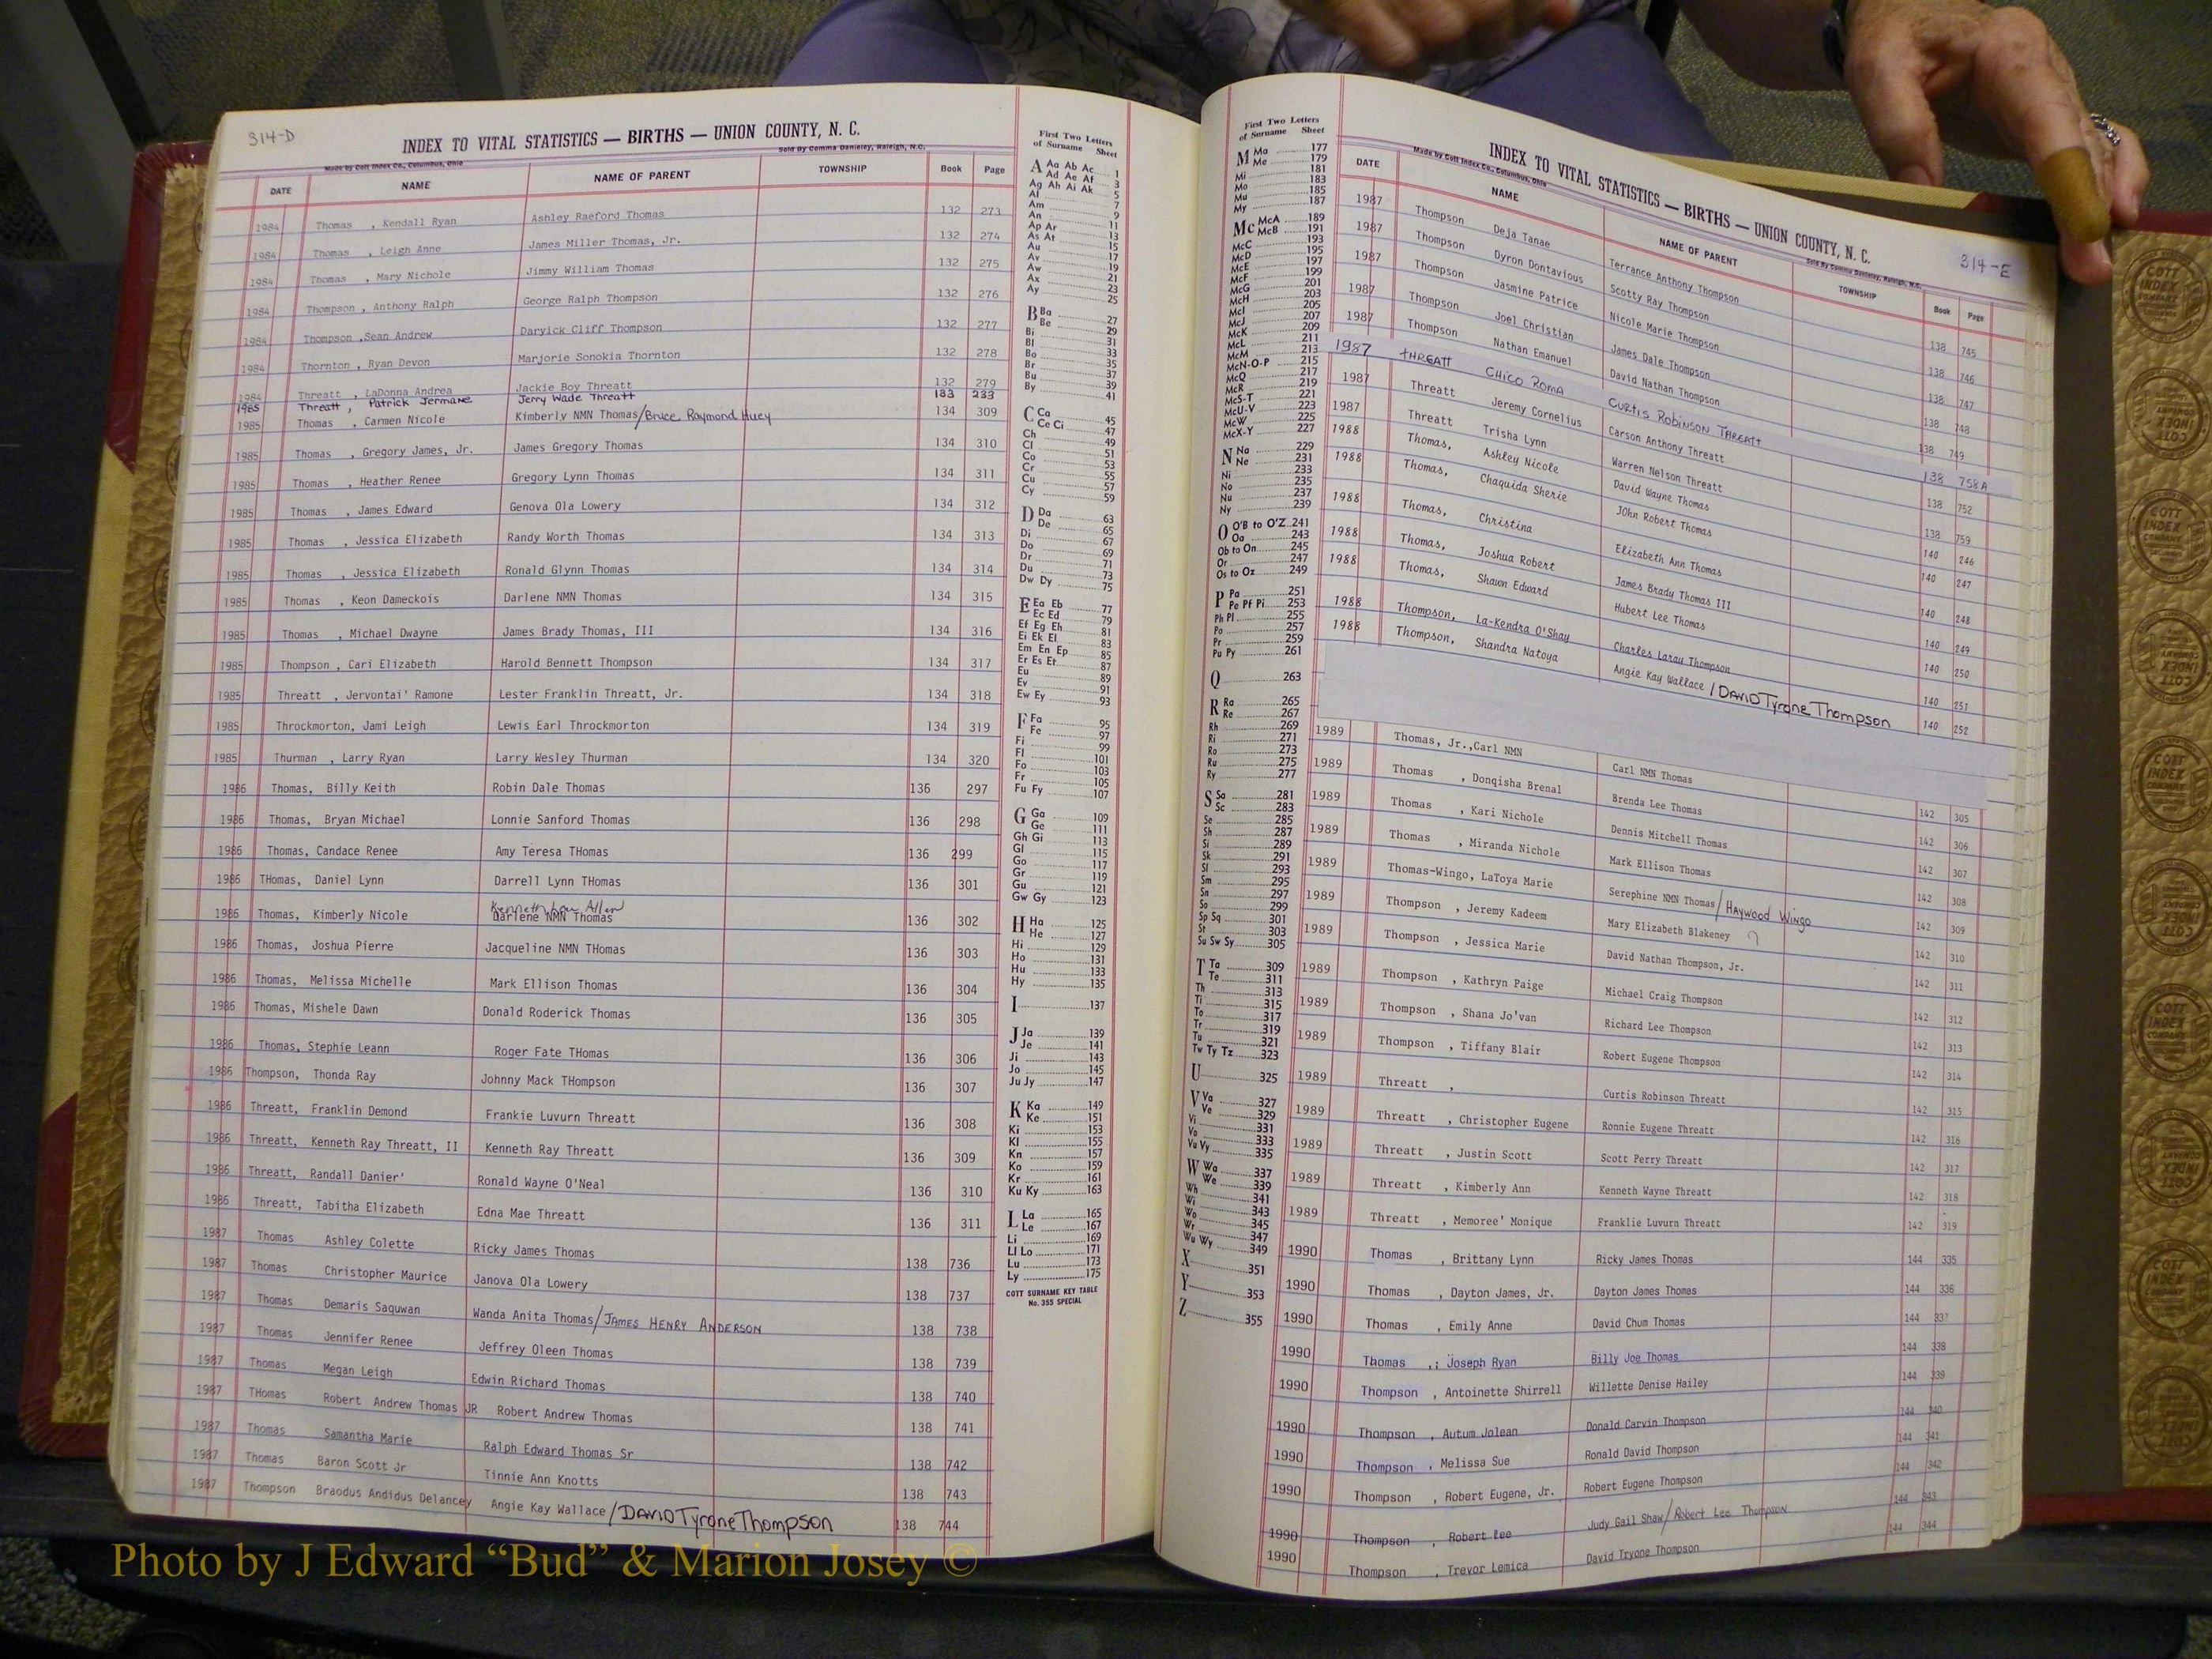 314-D
INDEX TO VITAL STATISTICS — BIRTHS — UNION COUNTY, N. C.
Made by Cott Index Co., Columbus, Ohio
Sold By Comma Danieley, Raleigh, N.C.
DATE NAME NAME OF PARENT TOWNSHIP Book Page
1984 Thomas , Kendall Ryan Ashley Raeford Thomas 132 273
1984 Thomas , Leigh Anne James Miller Thomas, Jr. 132 274
1984 Thomas , Mary Nichole Jimmy William Thomas 132 275
1984 Thompson , Anthony Ralph George Ralph Thompson 132 276
1984 Thompson ,Sean Andrew Daryick Cliff Thompson 132 277
1984 Thornton , Ryan Devon Marjorie Sonokia Thornton 132 278
1984 Threatt , LaDonna Andrea Jackie Boy Threatt 132 279
1985 Threatt, Patrick Jermane Jerry Wade Threatt 133 233
1985 Thomas , Carmen Nicole Kimberly NMN Thomas/Bruce Raymond Huey 134 309
1985 Thomas , Gregory James, Jr. James Gregory Thomas 134 310
1985 Thomas , Heather Renee Gregory Lynn Thomas 134 311
1985 Thomas , James Edward Genova Ola Lowery 134 312
1985 Thomas , Jessica Elizabeth Randy Worth Thomas 134 313
1985 Thomas , Jessica Elizabeth Ronald Glynn Thomas 134 314
1985 Thomas , Keon Dameckois Darlene NMN Thomas 134 315
1985 Thomas , Michael Dwayne James Brady Thomas, III 134 316
1985 Thompson , Cari Elizabeth Harold Bennett Thompson 134 317
1985 Threatt , Jervontai' Ramone Lester Franklin Threatt, Jr. 134 318
1985 Throckmorton, Jami Leigh Lewis Earl Throckmorton 134 319
1985 Thurman , Larry Ryan Larry Wesley Thurman 134 320
1986 Thomas, Billy Keith Robin Dale Thomas 136 297
1986 Thomas, Bryan Michael Lonnie Sanford Thomas 136 298
1986 Thomas, Candace Renee Amy Teresa THomas 136 299
1986 THomas, Daniel Lynn Darrell Lynn THomas 136 301
Kenneth Allen
1986 Thomas, Kimberly Nicole Darlene NMN Thomas 136 302
1986 Thomas, Joshua Pierre Jacqueline NMN THomas 136 303
1986 Thomas, Melissa Michelle Mark Ellison Thomas 136 304
1986 Thomas, Mishele Dawn Donald Roderick Thomas 136 305
1986 Thomas, Stephie Leann Roger Fate THomas 136 306
1986 Thompson, Thonda Ray Johnny Mack THompson 136 307
1986 Threatt, Franklin Demond Frankie Luvurn Threatt 136 308
1986 Threatt, Kenneth Ray Threatt, II Kenneth Ray Threatt 136 309
1986 Threatt, Randall Danier' Ronald Wayne O'Neal 136 310
1986 Threatt, Tabitha Elizabeth Edna Mae Threatt 136 311
1987 Thomas Ashley Colette Ricky James Thomas 138 736
1987 Thomas Christopher Maurice Janova Ola Lowery 138 737
1987 Thomas Demaris Saquwan Wanda Anita Thomas/JAMES HENRY ANDERSON 138 738
1987 Thomas Jennifer Renee Jeffrey Oleen Thomas 138 739
1987 Thomas Megan Leigh Edwin Richard Thomas 138 740
1987 THomas Robert Andrew Thomas JR Robert Andrew Thomas 138 741
1987 Thomas Samantha Marie Ralph Edward Thomas Sr 138 742
1987 Thomas Baron Scott Jr Tinnie Ann Knotts 138 743
1987 Thompson Braodus Andidus Delancey Angie Kay Wallace/DAVID Tyrone Thompson 138 744
First Two Letters
of Surname Sheet
A Aa Ab Ac 1
Ad Ae Af 3
Ag Ah Ai Ak 5
Al 7
Am 9
An 11
Ap Ar 13
As At 15
Au 17
Av 19
Aw 21
Ax 23
Ay 25
B Ba 27
Be 29
Bi 31
Bl 33
Bo 35
Br 37
Bu 39
By 41
C Ca 45
Ce Ci 47
Ch 49
Cl 51
Co 53
Cr 55
Cu 57
Cy 59
D Da 63
De 65
Di 67
Do 69
Dr 71
Du 73
Dw Dy 75
E Ea Eb 77
Ec Ed 79
Ef Eg Eh 81
Ei Ek El 83
Em En Ep 85
Er Es Et 87
Eu 89
Ev 91
Ew Ey 93
F Fa 95
Fe 97
Fi 99
Fl 101
Fo 103
Fr 105
Fu Fy 107
G Ga 109
Ge 111
Gh Gi 113
Gl 115
Go 117
Gr 119
Gu 121
Gw Gy 123
H Ha 125
He 127
Hi 129
Ho 131
Hu 133
Hy 135
I 137
J Ja 139
Je 141
Ji 143
Jo 145
Ju Jy 147
K Ka 149
Ke 151
Ki 153
Kl 155
Kn 157
Ko 159
Kr 161
Ku Ky 163
L La 165
Le 167
Li 169
Ll Lo 171
Lu 173
Ly 175
COTT SURNAME KEY TABLE
No. 355 SPECIAL
First Two Letters
of Surname Sheet
M Ma 177
Me 179
Mi 181
Mo 183
Mu 185
My 187
Mc McA 189
McB 191
McC 193
McD 195
McE 197
McF 199
McG 201
McH 203
McI 205
McJ 207
McK 209
McL 211
McM 213
McN-O-P 215
McQ 217
McR 219
McS-T 221
McU-V 223
McW 225
McX-Y 227
N Na 229
Ne 231
Ni 233
No 235
Nu 237
Ny 239
O O'B to O'Z 241
Oa 243
Ob to On 245
Or 247
Os to Oz 249
P Pa 251
Pe Pf Pi 253
Ph Pl 255
Po 257
Pr 259
Pu Py 261
Q 263
R Ra 265
Re 267
Rh 269
Ri 271
Ro 273
Ru 275
Ry 277
S Sa 281
Sc 283
Se 285
Sh 287
Si 289
Sk 291
Sl 293
Sm 295
Sn 297
So 299
Sp Sq 301
St 303
Su Sw Sy 305
T Ta 309
Te 311
Th 313
Ti 315
To 317
Tr 319
Tu 321
Tw Ty Tz 323
U 325
V Va 327
Ve 329
Vi 331
Vo 333
Vu Vy 335
W Wa 337
We 339
Wh 341
Wi 343
Wo 345
Wr 347
Wu Wy 349
X 351
Y 353
Z 355
INDEX TO VITAL STATISTICS — BIRTHS — UNION COUNTY, N. C.
314-E
Made by Cott Index Co., Columbus, Ohio
Sold By Comma Danieley, Raleigh, N.C.
DATE NAME NAME OF PARENT TOWNSHIP Book Page
1987 Thompson Deja Tanae Terrance Anthony Thompson 138 745
1987 Thompson Dyron Dontavious Scotty Ray Thompson 138 746
1987 Thompson Jasmine Patrice Nicole Marie Thompson 138 747
1987 Thompson Joel Christian James Dale Thompson 138 748
1987 Thompson Nathan Emanuel David Nathan Thompson 138 749
1987 THREATT CHICO ROMA CURTIS ROBINSON THREATT 138 758A
1987 Threatt Jeremy Cornelius Carson Anthony Threatt 138 752
1987 Threatt Trisha Lynn Warren Nelson Threatt 138 759
1988 Thomas, Ashley Nicole David Wayne Thomas 140 246
1988 Thomas, Chaquida Sherie JOhn Robert Thomas 140 247
1988 Thomas, Christina Elizabeth Ann Thomas 140 248
1988 Thomas, Joshua Robert James Brady Thomas III 140 249
1988 Thomas, Shawn Edward Hubert Lee Thomas 140 250
1988 Thompson, La-Kendra O'Shay Charles Laray Thompson 140 251
1988 Thompson, Shandra Natoya Angie Kay Wallace/DAVID Tyrone Thompson 140 252
1989 Thomas, Jr.,Carl NMN Carl NMN Thomas 142 305
1989 Thomas , Donqisha Brenal Brenda Lee Thomas 142 306
1989 Thomas , Kari Nichole Dennis Mitchell Thomas 142 307
1989 Thomas , Miranda Nichole Mark Ellison Thomas 142 308
1989 Thomas-Wingo, LaToya Marie Serephine NMN Thomas/HAYWOOD WINGO 142 309
1989 Thompson , Jeremy Kadeem Mary Elizabeth Blakeney ? 142 310
1989 Thompson , Jessica Marie David Nathan Thompson, Jr. 142 311
1989 Thompson , Kathryn Paige Michael Craig Thompson 142 312
1989 Thompson , Shana Jo'van Richard Lee Thompson 142 313
1989 Thompson , Tiffany Blair Robert Eugene Thompson 142 314
1989 Threatt , Curtis Robinson Threatt 142 315
1989 Threatt , Christopher Eugene Ronnie Eugene Threatt 142 316
1989 Threatt , Justin Scott Scott Perry Threatt 142 317
1989 Threatt , Kimberly Ann Kenneth Wayne Threatt 142 318
1989 Threatt , Memoree' Monique Franklie Luvurn Threatt 142 319
1990 Thomas , Brittany Lynn Ricky James Thomas 144 335
1990 Thomas , Dayton James, Jr. Dayton James Thomas 144 336
1990 Thomas , Emily Anne David Chum Thomas 144 337
1990 Thomas ,; Joseph Ryan Billy Joe Thomas 144 338
1990 Thompson , Antoinette Shirrell Willette Denise Hailey 144 339
1990 Thompson , Autum Jolean Donald Carvin Thompson 144 340
1990 Thompson , Melissa Sue Ronald David Thompson 144 341
1990 Thompson , Robert Eugene, Jr. Robert Eugene Thompson 144 342
1990 Thompson , Robert Lee Judy Gail Shaw/Robert Lee Thompson 144 343
1990 Thompson , Trevor Lemica David Tryone Thompson 144 344
COTT INDEX COMPANY
Photo by J Edward “Bud” & Marion Josey ©